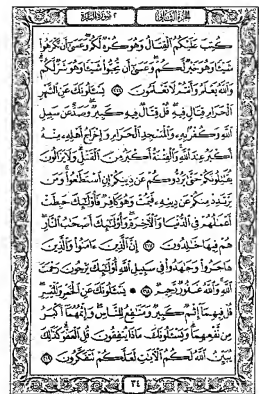 الجزء الثاني
٢ سورة البقرة
كُتِبَ عَلَيْكُمُ ٱلْقِتَالُ وَهُوَ كُرْهٌ لَّكُمْ وَعَسَىٰٓ أَن تَكْرَهُوا۟
شَيْـًٔا وَهُوَ خَيْرٌ لَّكُمْ وَعَسَىٰٓ أَن تُحِبُّوا۟ شَيْـًٔا وَهُوَ شَرٌّ لَّكُمْ
وَٱللَّهُ يَعْلَمُ وَأَنتُمْ لَا تَعْلَمُونَ ﴿٢١٦﴾ يَسْـَٔلُونَكَ عَنِ ٱلشَّهْرِ
ٱلْحَرَامِ قِتَالٍ فِيهِ قُلْ قِتَالٌ فِيهِ كَبِيرٌ وَصَدٌّ عَن سَبِيلِ
ٱللَّهِ وَكُفْرٌۢ بِهِۦ وَٱلْمَسْجِدِ ٱلْحَرَامِ وَإِخْرَاجُ أَهْلِهِۦ مِنْهُ
أَكْبَرُ عِندَ ٱللَّهِ وَٱلْفِتْنَةُ أَكْبَرُ مِنَ ٱلْقَتْلِ وَلَا يَزَالُونَ
يُقَٰتِلُونَكُمْ حَتَّىٰ يَرُدُّوكُمْ عَن دِينِكُمْ إِنِ ٱسْتَطَٰعُوا۟ وَمَن
يَرْتَدِدْ مِنكُمْ عَن دِينِهِۦ فَيَمُتْ وَهُوَ كَافِرٌ فَأُو۟لَٰٓئِكَ حَبِطَتْ
أَعْمَٰلُهُمْ فِى ٱلدُّنْيَا وَٱلْءَاخِرَةِ وَأُو۟لَٰٓئِكَ أَصْحَٰبُ ٱلنَّارِ
هُمْ فِيهَا خَٰلِدُونَ ﴿٢١٧﴾ إِنَّ ٱلَّذِينَ ءَامَنُوا۟ وَٱلَّذِينَ
هَاجَرُوا۟ وَجَٰهَدُوا۟ فِى سَبِيلِ ٱللَّهِ أُو۟لَٰٓئِكَ يَرْجُونَ رَحْمَتَ
ٱللَّهِ وَٱللَّهُ غَفُورٌ رَّحِيمٌ ﴿٢١٨﴾ يَسْـَٔلُونَكَ عَنِ ٱلْخَمْرِ وَٱلْمَيْسِرِ
قُلْ فِيهِمَآ إِثْمٌ كَبِيرٌ وَمَنَٰفِعُ لِلنَّاسِ وَإِثْمُهُمَآ أَكْبَرُ
مِن نَّفْعِهِمَا وَيَسْـَٔلُونَكَ مَاذَا يُنفِقُونَ قُلِ ٱلْعَفْوَ كَذَٰلِكَ
يُبَيِّنُ ٱللَّهُ لَكُمُ ٱلْءَايَٰتِ لَعَلَّكُمْ تَتَفَكَّرُونَ ﴿٢١٩﴾
٣٤